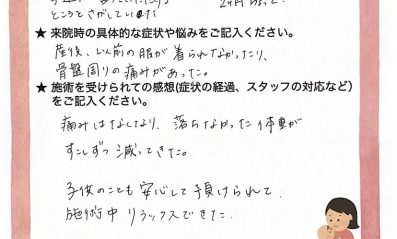 ところとさがしていた
★ 来院時の具体的な症状や悩みをご記入ください。
産後、以前の服が着られなかったり、
骨盤周りの痛みがあった。
★ 施術を受けられての感想(症状の経過、スタッフの対応など)
をご記入ください。
痛みはなくなり、落ちなかった体重が
すこしずつ減ってきた。
子供のことも安心して預けられて、
施術中リラックスできた。